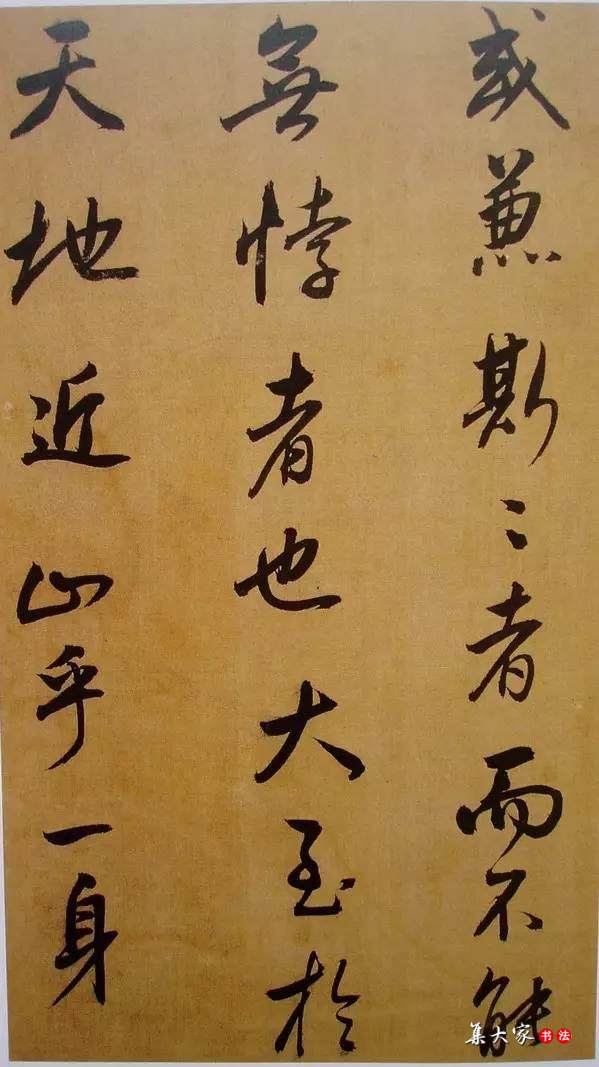 或兼斯二者而不能
無悖者也大至於
天地近止乎一身
集大家书法